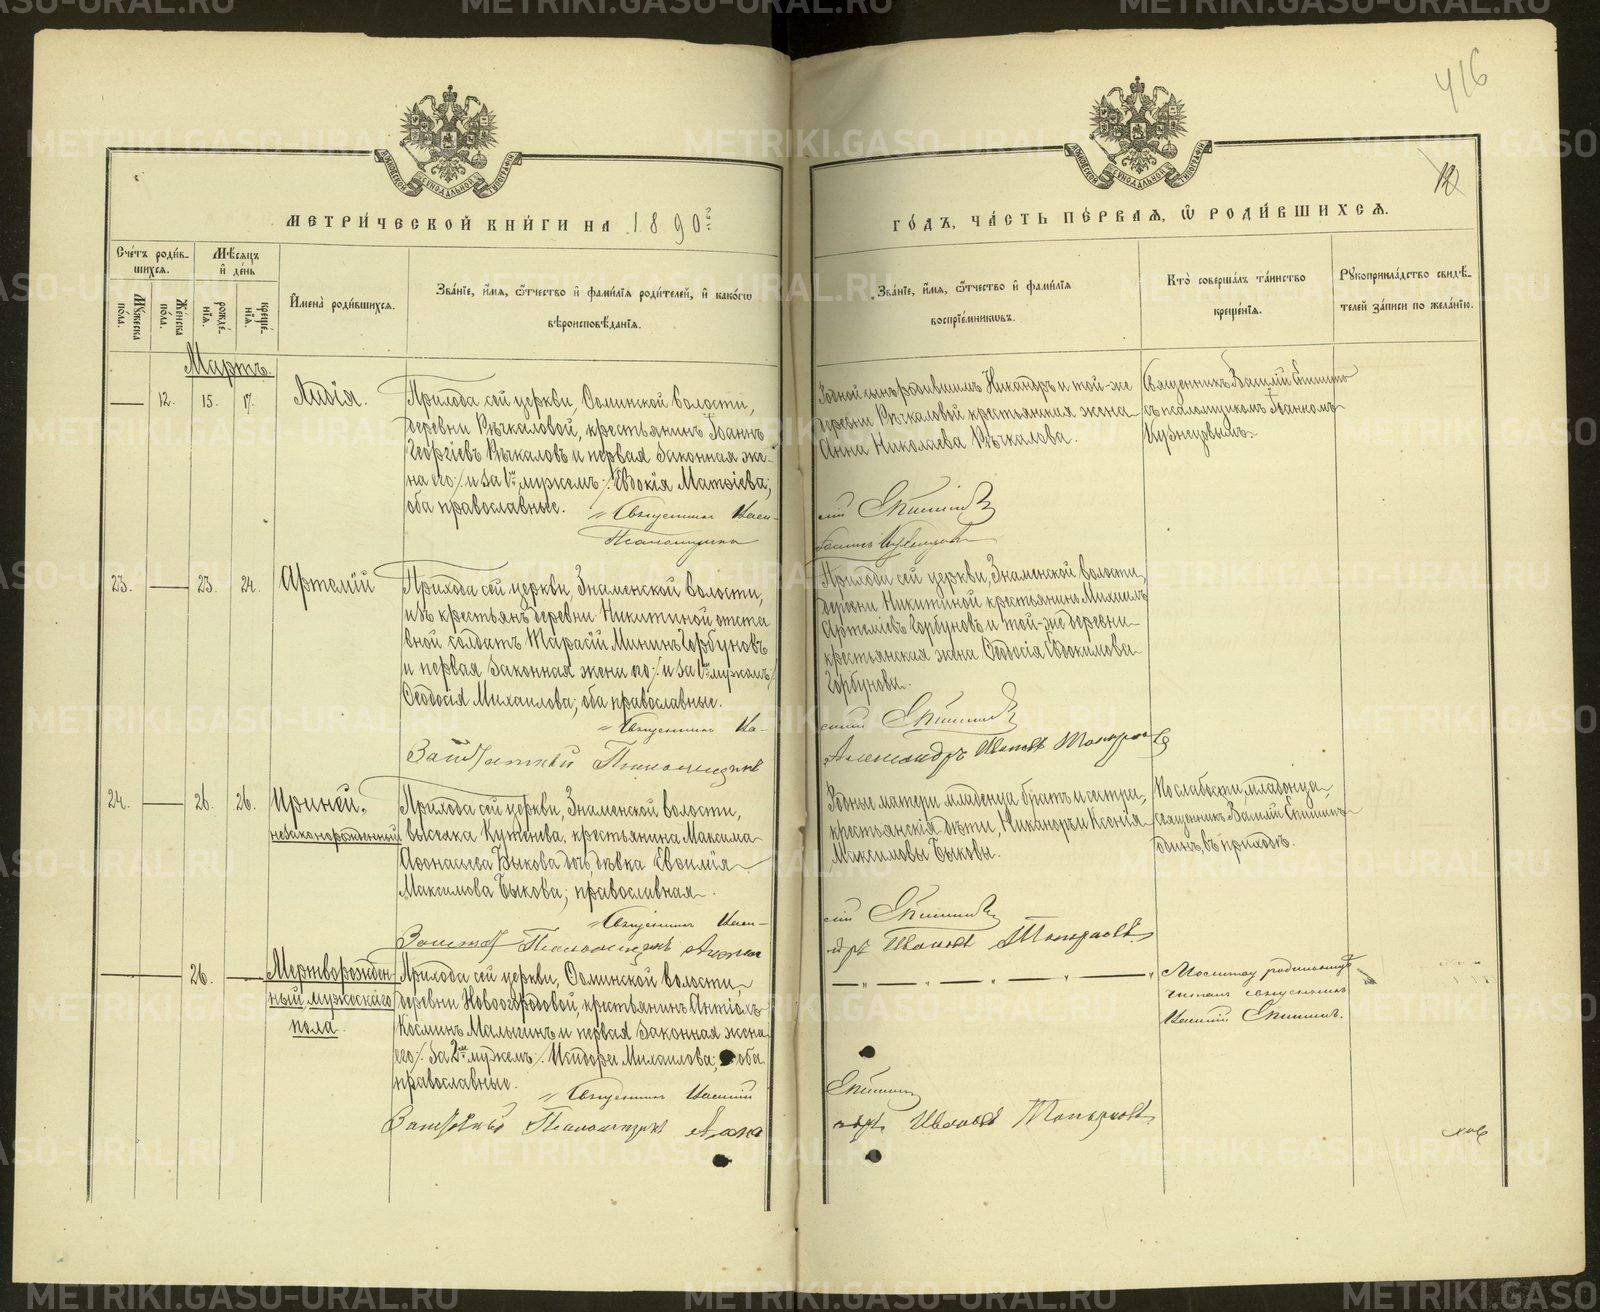 416
12
МЕТРИ́ЧЕСКОЙ КНИ́ГИ НА 1890й
ГО́ДЪ, ЧА́СТЬ ПЕ́РВАЯ, Ѡ РОДИ́ВШИХСЯ.
Сче́тъ роди́в-
шихся.
Му́жеска
пола.
Же́нска
пола.
Мѣ́сяцъ
и де́нь
рожде́-
нїя.
креще́-
нїя.
И́мена роди́вшихся.
Зва́нїе, и́мя, ѻ́тчество и фами́лїя роди́телей, и како́гѡ
вѣроисповѣ́данїя.
Зва́нїе, и́мя, ѻ́тчество и фами́лїя
воспрїе́мниковъ.
Кто̀ соверша́лъ та́инство
креще́нїя.
Рукоприкла́дство свидѣ́-
телей за́писи по жела́нїю.
Мартъ.
12. 15. 17.
Лидія.
Прихода сей церкви, Ѳоминской волости,
деревни Рѣчкаловой, крестьянинъ Іоаннъ
Георгіевъ Рѣчкаловъ и первая законная же-
на его /и за 1мъ мужемъ/ Евдокія Матѳіева;
оба православные.
Священникъ Васи-
Псаломщикъ
Родной сынъ родившимъ Никандръ и той-же
деревни Рѣчкаловой крестьянская жена
Анна Николаева Рѣчкалова.
лій Епишинъ
Іоаннъ Кузнецовъ
Священникъ Василій Епишинъ
съ псаломщикомъ Іоанномъ
Кузнецовымъ.
23. 23. 24.
Артемій
Прихода сей церкви, Знаменской волости,
изъ крестьянъ деревни Никитиной отста
вной солдатъ Тарасій Мининъ Горбуновъ
и первая законная жена его /и за 1мъ мужемъ/
Ѳеодосія Михаилова; оба православные.
Священникъ Ва-
Заштатный Псаломщикъ
Прихода сей церкви, Знаменской волости,
деревни Никитиной крестьянинъ Михаилъ
Артеміевъ Горбуновъ и той-же деревни
крестьянская жена Ѳеодосія Евдокимова
Горбунова.
силій Епишинъ
Александръ Ивановъ Топорковъ
24. 26. 26.
Ириней,
незаконорожденный
Прихода сей церкви, Знаменской волости,
выселка Кутенева, крестьянина Максима
Аѳонасьева Быкова дочь, дѣвка Евѳимія
Максимова Быкова; православная.
Священникъ Васи-
Заштат Псаломщикъ Алексан
Родные матери младенца братъ и сестра,
крестьянскія дѣти, Никаноръ и Ксенія
Максимовы Быковы.
лій Епишинъ
дръ Ивановъ Топорковъ.
По слабости младенца,
священникъ Василій Епишинъ
одинъ, въ приходѣ.
26.
Мертворожден
ный, мужескаго
пола.
Прихода сей церкви, Ѳоминской волости,
деревни Новоогородовой, крестьянинъ Антіохъ
Космин Малыгинъ и первая законная жена
его /за 2мъ мужемъ/ Исидора Михаилова; оба
православные.
Священникъ Василій
Заштатный Псаломщикъ Алекса
Епишинъ
ндръ Ивановъ Топорковъ
Молитву родильницѣ
читалъ священникъ
Василій Епишинъ.